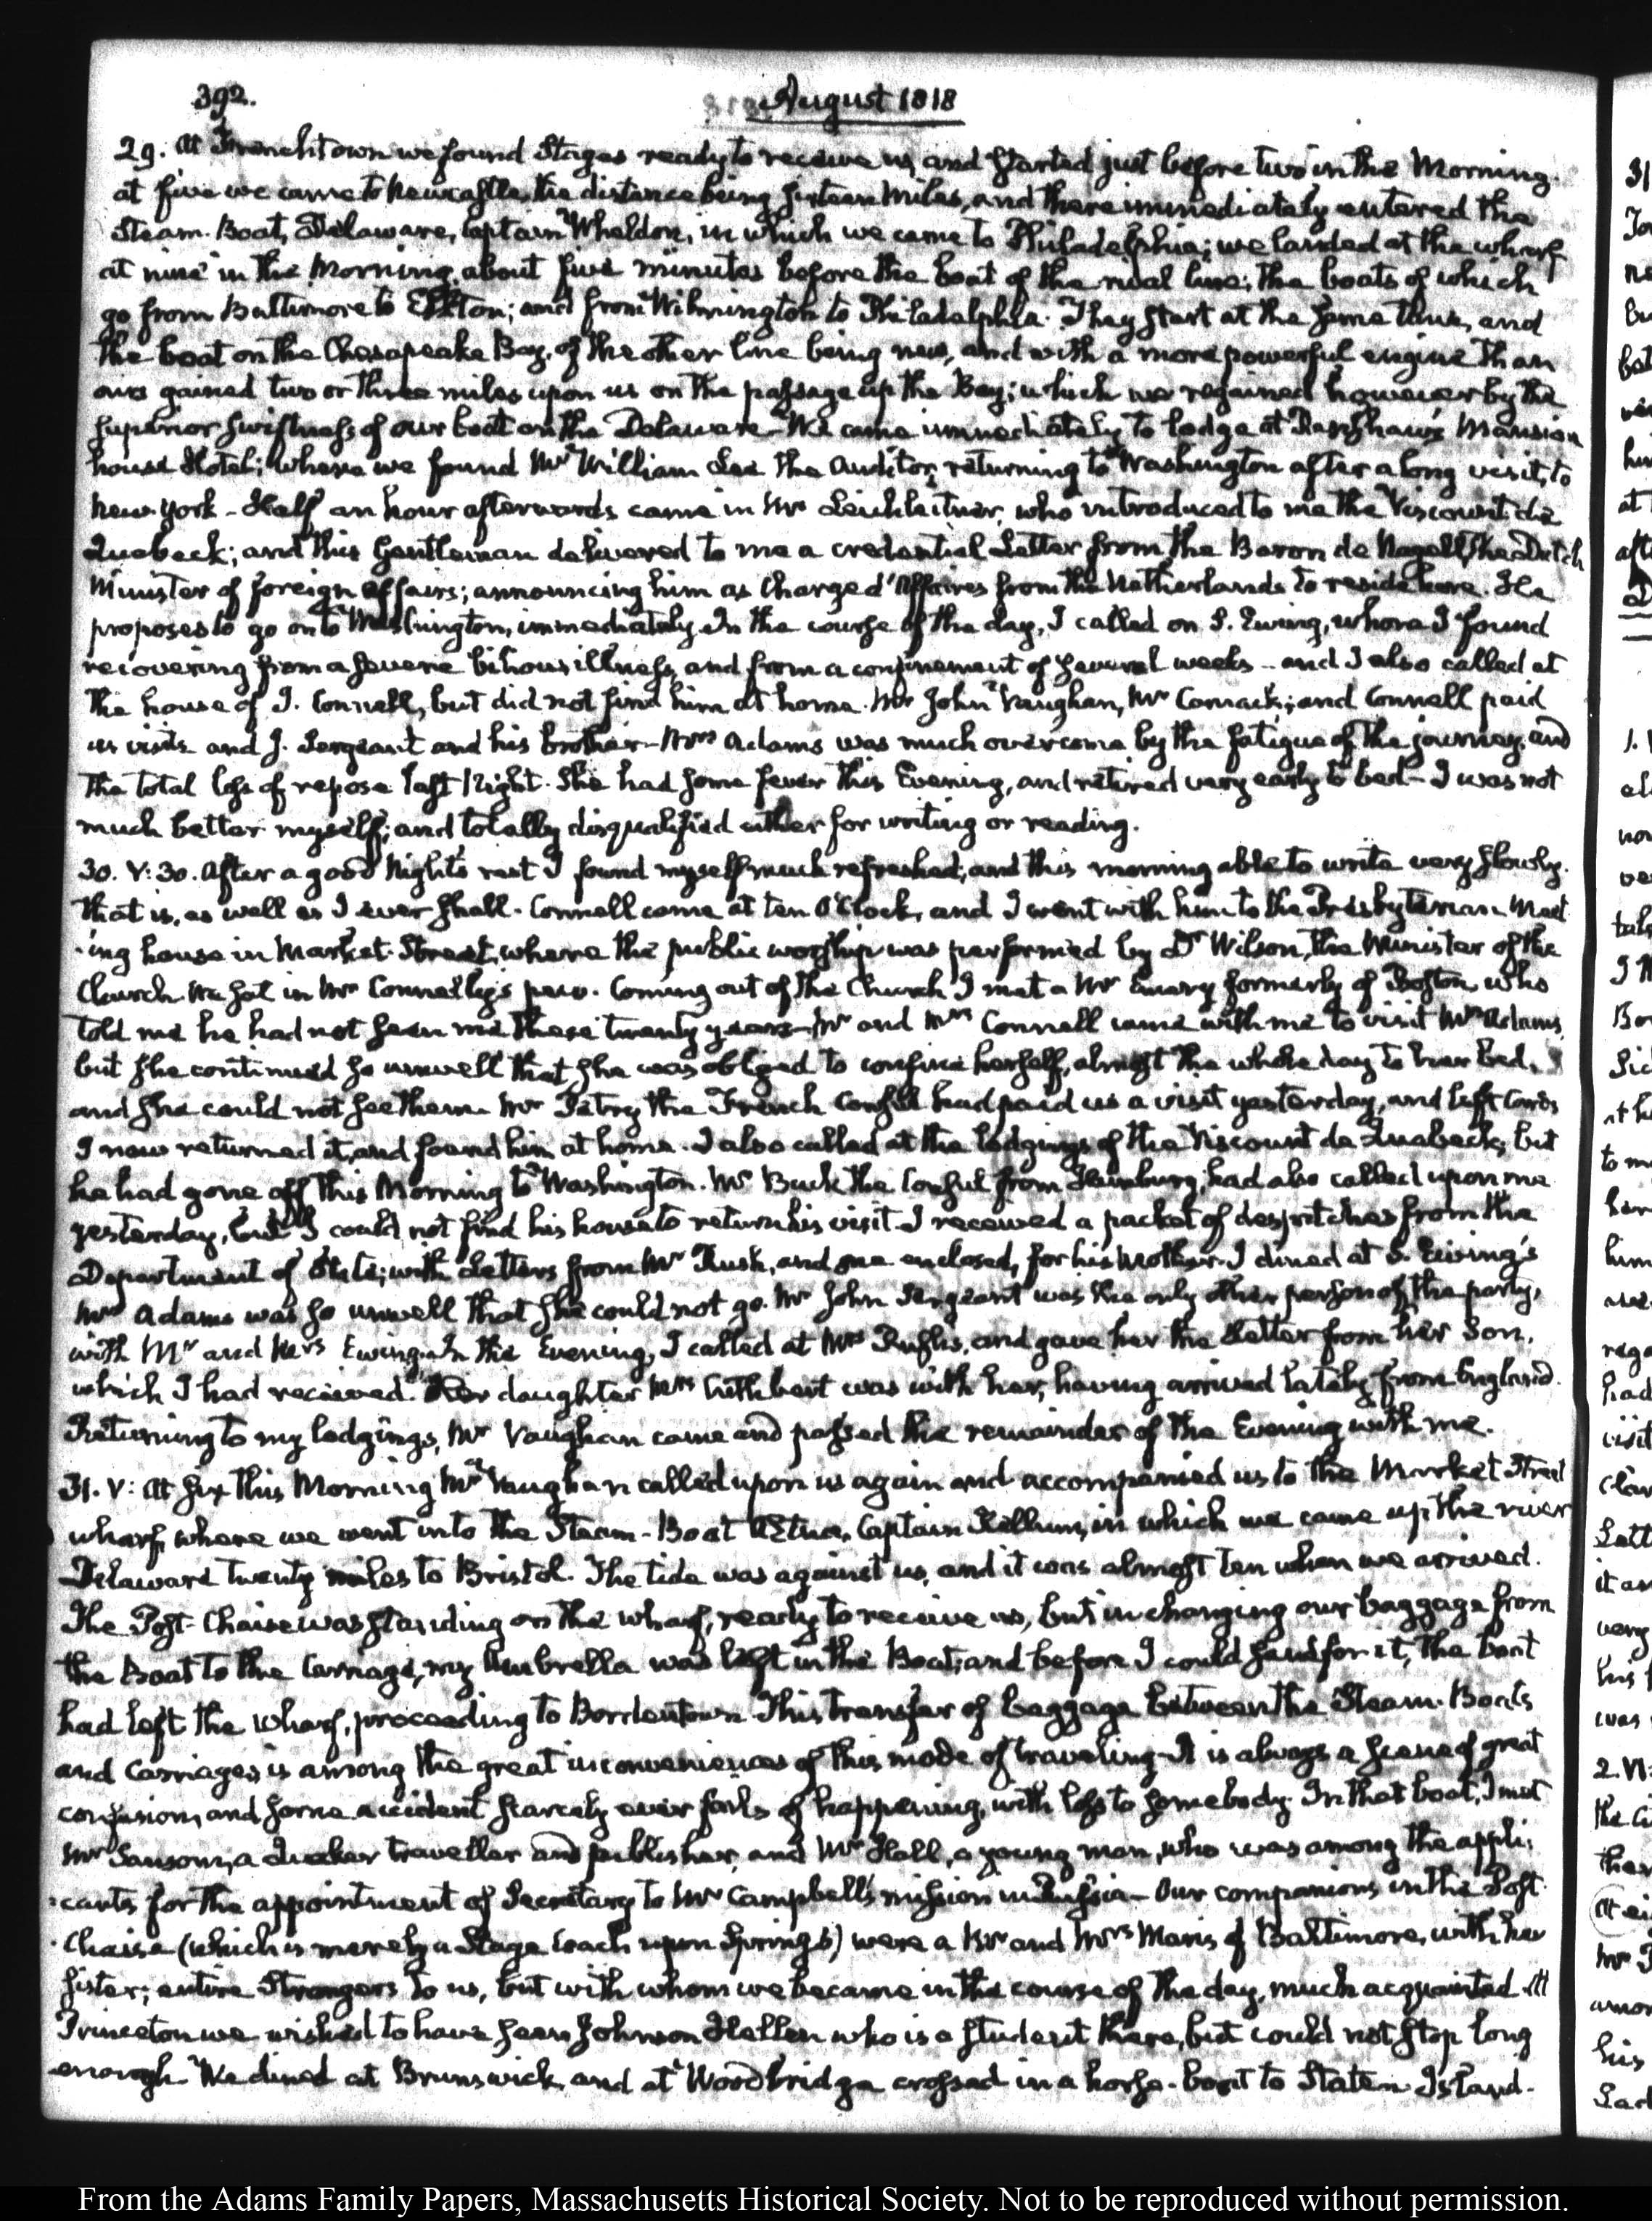 392.
August 1818
29. At Frenchtown we found Stages ready to receive us, and started just before two in the Morning.
at five we came to Newcastle, the distance being sixteen miles, and there immediately entered the
Steam-Boat, Delaware, Captain Wheldon, in which we came to Philadelphia; we landed at the wharf
at nine in the Morning, about five minutes before the boat of the rival line; the boats of which
go from Baltimore to Elkton; and from Wilmington to Philadelphia. They start at the same time, and
the boat on the Chesapeake Bay, of the other line being new, and with a more powerful engine than
ours gained two or three miles upon us on the passage up the Bay; which we regained however by the
superior swiftness of our boat on the Delaware– We came immediately to lodge at Renshaw's Mansion
house Hotel; where we found Mr William Lee the Auditor, returning to Washington after a long visit, to
New York – Half an hour afterwards came in Mr Leichleitner, who introduced to me the Viscount de
Quabeck; and this Gentleman delivered to me a credential Letter from the Baron de Nagell, the Dutch
Minister of foreign affairs; announcing him as Chargé d'Affaires from the Netherlands to reside here. He
proposes to go on to Washington, immediately. In the course of the day, I called on S. Ewing, whom I found
recovering from a severe bilious illness, and from a confinement of several weeks – and I also called at
the house of J. Connell, but did not find him at home. Mr John Vaughan, Mr and Connell paid
us visits and J. Sergeant and his brother– Mrs Adams was much overcome by the fatigue of the journey, and
the total loss of repose last Night. She had some fever this Evening, and retired very early to bed– I was not
much better myself; and totally disqualified either for writing or reading.
30. V:30. After a good Night's rest I found myself much refreshed; and this morning able to write very slowly.
that is, as well as I ever shall. Connell came at ten O'Clock, and I went with him to the Presbyterian Meet
-ing house in Market-Street, where the public worship was performed by Dr Wilson, the Minister of the
Church. We sat in Mr Connelly's pew. Coming out of the Church I met a Mr Emery formerly of Boston, who
told me he had not seen me these twenty years– Mr and Mrs Connell came with me to visit Mrs Adams,
but she continued so unwell that she was obliged to confine herself, almost the whole day to her bed,
and she could not see them– Mr Petry the French Consul had paid us a visit yesterday, and left Cards
I now returned it, and found him at home. I also called at the lodgings of the Viscount de Quabeck, but
he had gone off this Morning to Washington. Mr Buck the Consul from Hamburg, had also called upon me
yesterday, but I could not find his house to return his visit. I received a packet of despatches from the
Department of State; with Letters from Mr Rush, and one enclosed, for his Mother. I dined at S. Ewing's
Mrs Adams was so unwell that she could not go. Mr John Sergeant was the only other person of the party,
with Mr and Mrs Ewing. In the Evening, I called at Mrs Rush's, and gave her the Letter from her Son,
which I had received. Her daughter Mrs Cuthbert was with her, having arrived lately from England.
Returning to my lodgings, Mr Vaughan came and passed the remainder of the Evening with me.
31. V: At six this Morning Mr Vaughan called upon us again and accompanied us to the Market Street
wharf, where we went into the Steam-Boat Ætna, Captain Kellum, in which we came up the river
Delaware twenty miles to Bristol. The tide was against us, and it was almost ten when we arrived.
The Post-Chaise was standing on the wharf, ready to receive us, but in changing our baggage from
the Boat to the Carriage, my Umbrella was left in the Boat; and before I could send for it, the boat
had left the wharf, proceeding to Bordentown– This transfer of baggage between the Steam-Boats
and Carriages is among the great inconveniences of this mode of traveling– It is always a scene of great
confusion, and some accident scarcely ever fails of happening, with loss to somebody. In that boat, I met
Mr Sansom, a Quaker traveller and publisher, and Mr Hall, a young man, who was among the appli-
-cants for the appointment of Secretary to Mr Campbell's mission in Russia– Our companions in the Post
-Chaise (which is merely a Stage Coach upon Springs) were a Mr and Mrs Maris of Baltimore, with her
sister; entire Strangers to us, but with whom we became in the course of the day, much acquainted. At
Princeton we wished to have seen Johnson Hellen who is a student there, but could not stop long
enough– We dined at Brunswick, and at Woodbridge crossed in a horse-boat to Staten-Island.
From the Adams Family Papers, Massachusetts Historical Society. Not to be reproduced without permission.